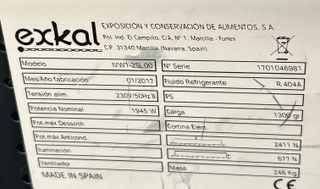 exkal
EXPOSICIÓN Y CONSERVACIÓN DE ALIMENTOS, S.A.
Pol. Ind. El Campillo, C/A, Nº 1. Marcilla - Funes
C.P. 31340 Marcilla (Navarra, Spain)
Modelo IVW1-2SL00 Nº Serie 1701046981
Mes/Año fabricación 01/2017 Fluido Refrigerante R 404A
Tensión alim. 230V/50Hz II PS
Potencia Nominal 1945 W Carga 1300 gr
Pot.max Desesch Cortina Eléct.
Pot.max Anticond. 2411 N
Iluminación 677 N
Ventilador Masa 246 Kg
MADE IN SPAIN